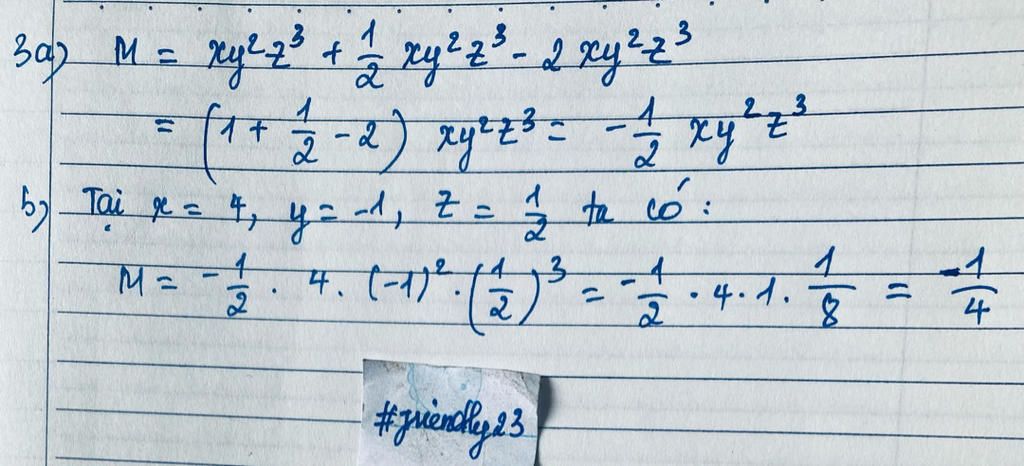 3a) M = xy²z³ + 1/2 xy²z³ - 2 xy²z³
= (1 + 1/2 - 2) xy²z³ = - 1/2 xy²z³
b) Tại x = 4, y = -1, z = 1/2 ta có :
M = - 1/2 . 4 . (-1)² . (1/2)³ = - 1/2 . 4 . 1 . 1/8 = -1/4
#friendly23